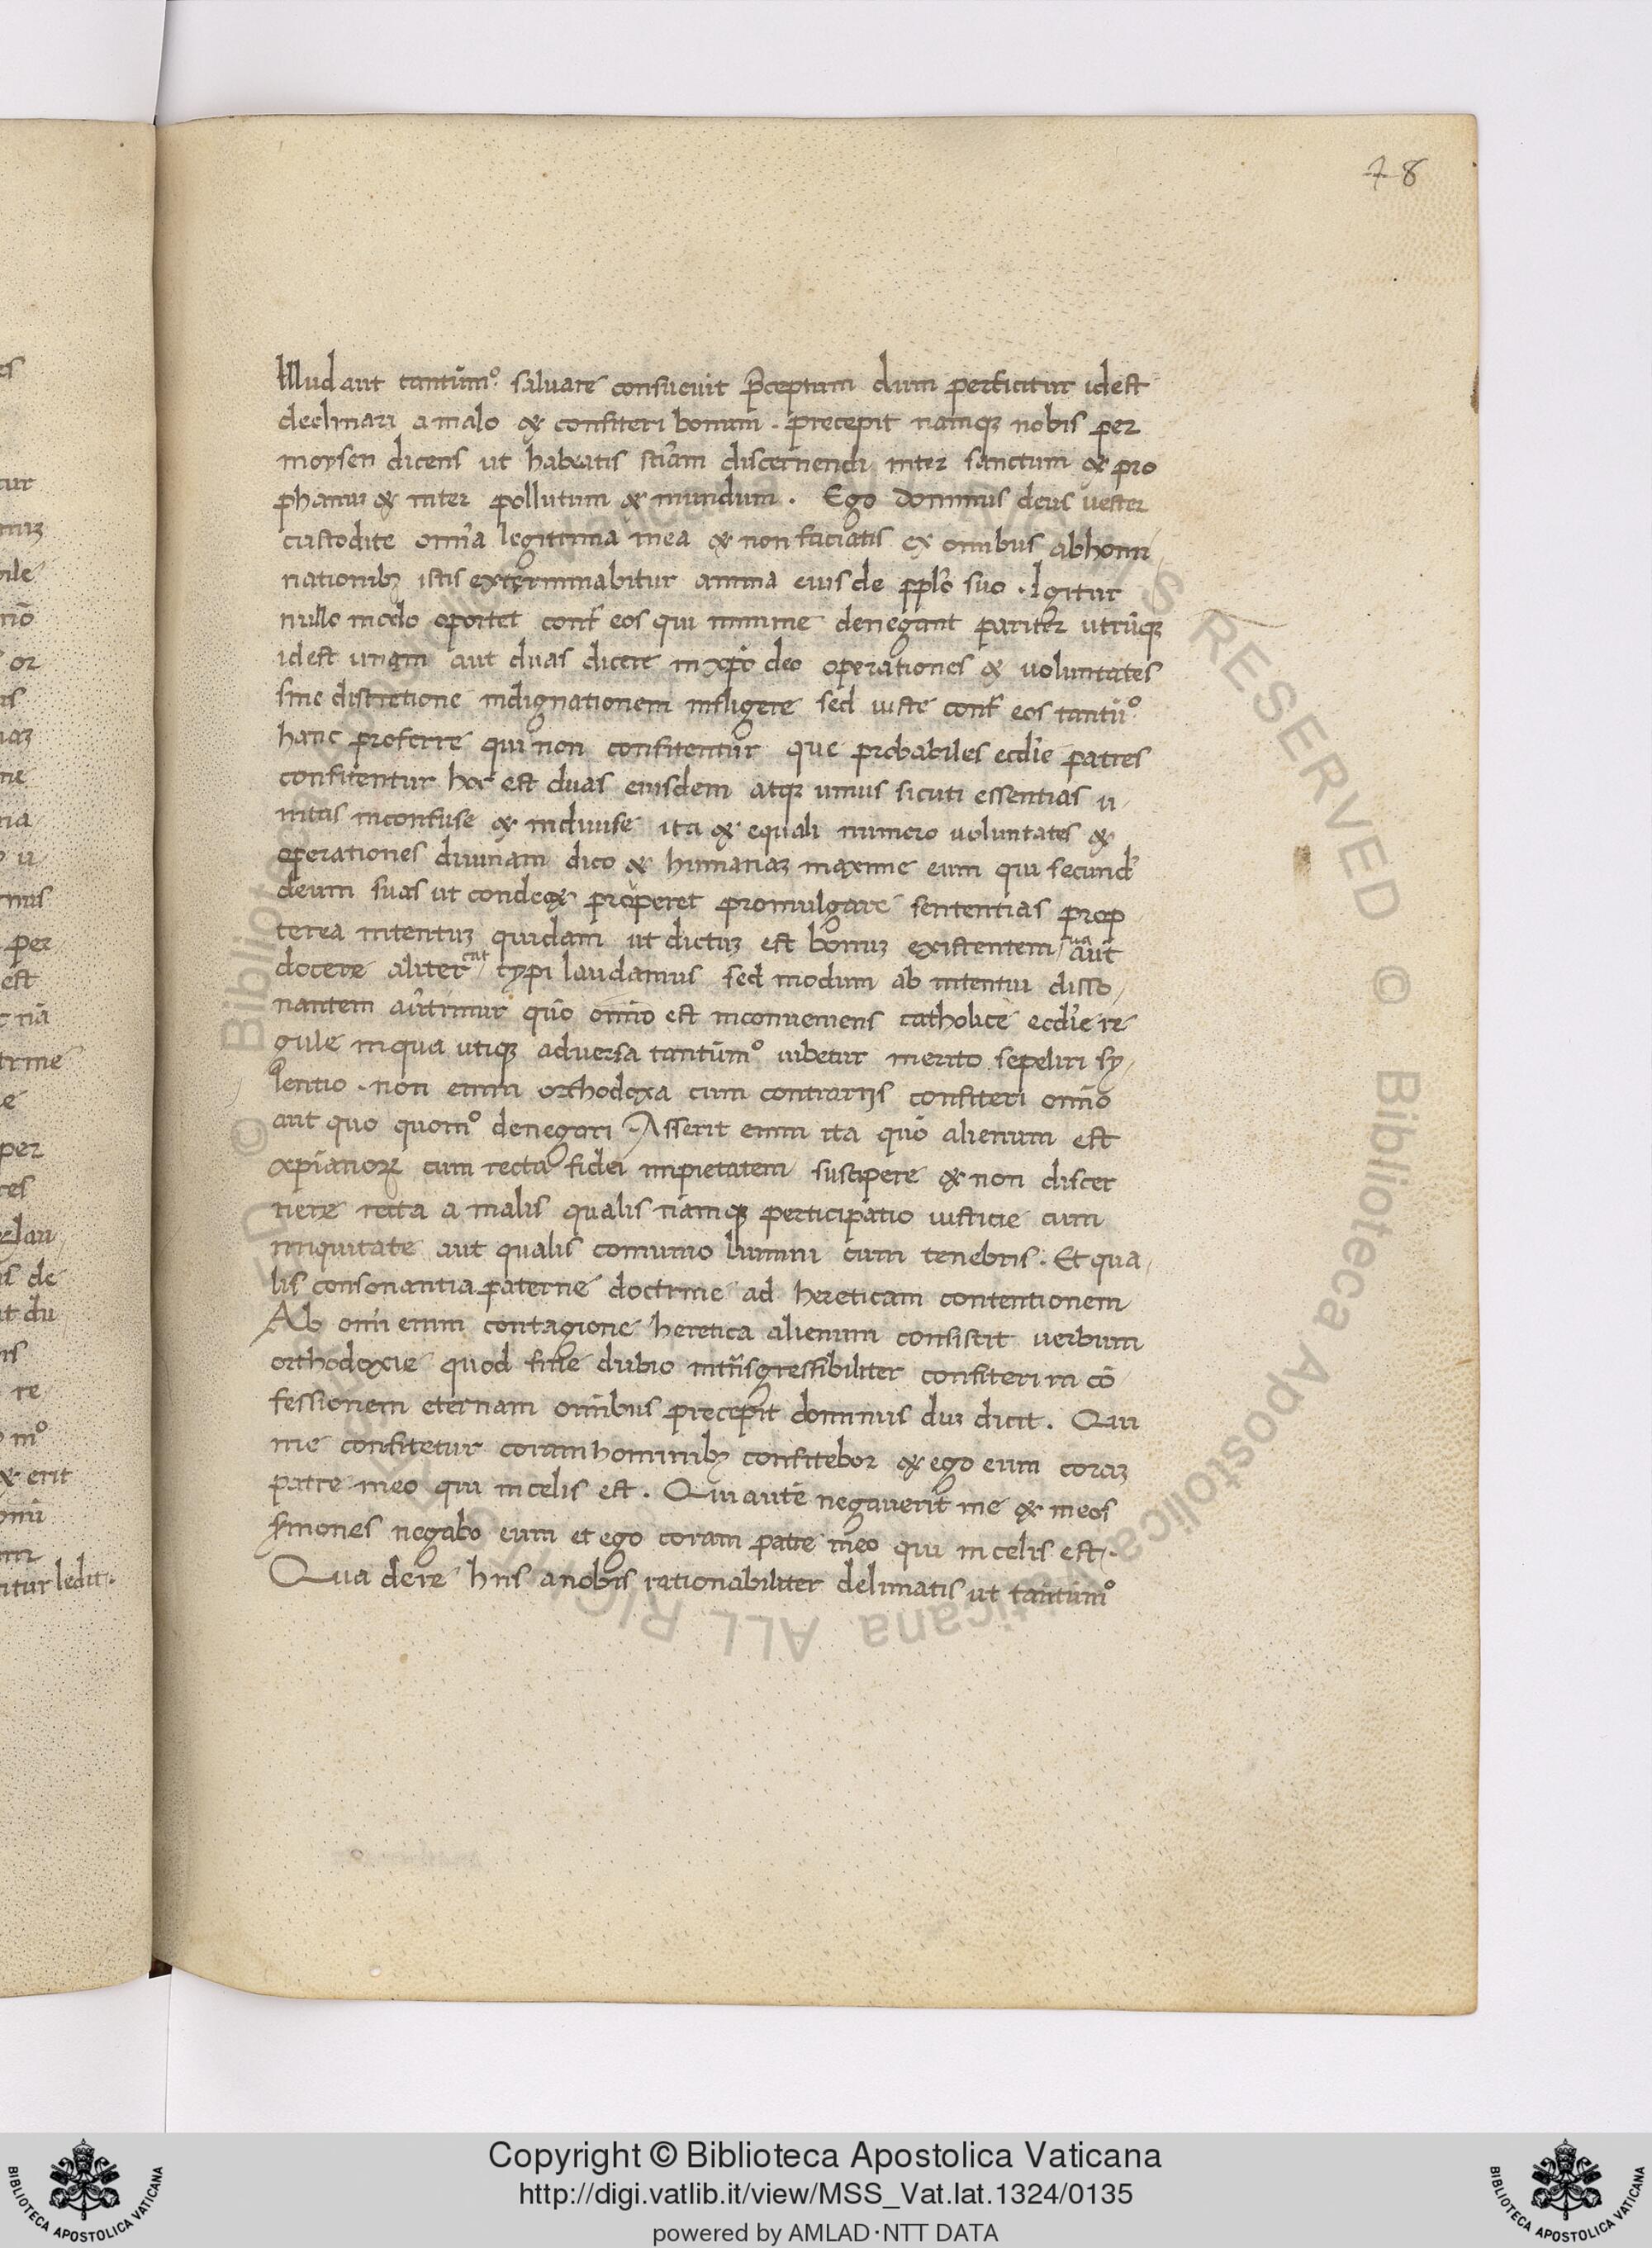 78
Illud aut tantūmº saluare consueuit p̄ceptum dum perficitur idest
declinari a malo & confiteri bonum . precepit namqꝫ nobis per
moysen dicens ut habeatis sciām discernendi inter sanctum & pro
phanuꝫ & inter pollutum & mundum . Ego dominus deus uester
custodite omīa legittima mea & non faciatis ex omībus abhomi
nationibꝫ istis exterminabitur anima eius de pplo suo . Igitur
nullo modo oportet cont̄ eos qui minime denegant pariter utrūqꝫ
idest unam aut duas dicere in xp̄o deo operationes & uoluntates
sine discretione indignationem infligere sed iuste cont̄ eos tantūº
hanc proferre qui non confitentur que probabiles eccl̄ie patres
confitentur hoc est duas eiusdem atqꝫ unius sicuti essentias u
nitas inconfuse & indiuise ita & equali numero uoluntates &
operationes diuinam dico & humanaꝫ maxime eum qui secund̄
deum suas ut condecet properet promulgare sententias prop
terea intentuꝫ quidam ut dictuꝫ est bonuꝫ existentem aut
docere aliter typi laudamus sed modum ab intentu disso
nantem aūtimur quō omīo est inconueniens catholice eccl̄ie re
gule in qua utiqꝫ aduersa tantūmº iubetur merito sepeliri sy
lentio . non enim orthodoxa cum contrarijs confiteri omīo
aut quo quomº denegari . Asserit enim ita quō alienum est
xp̄ianoꝝ cum recta fidei impietatem suscipere & non discer
nere recta a malis qualis namqꝫ perticipatio iusticie cum
iniquitate aut qualis comunio lumini cum tenebris . Et qua
lis consonantia paterne doctrine ad hereticam contentionem
Ab omī enim contagione heretica alienum consistit uerbum
orthodoxie quod sine dubio intn̄sgressibiliter confiteri in cō
fessionem eternam omībus precepit dominus duꝫ dicit . Qui
me confitetur coram hominibꝫ confitebor & ego eum coraꝫ
patre meo qui in celis est . Qui autē negauerit me & meos
s̄mones negabo eum et ego coram patre meo qui in celis est .
Qua de re hiis a nobis rationabiliter delimatis ut tantūmº
Copyright © Biblioteca Apostolica Vaticana
http://digi.vatlib.it/view/MSS_Vat.lat.1324/0135
powered by AMLAD·NTT DATA